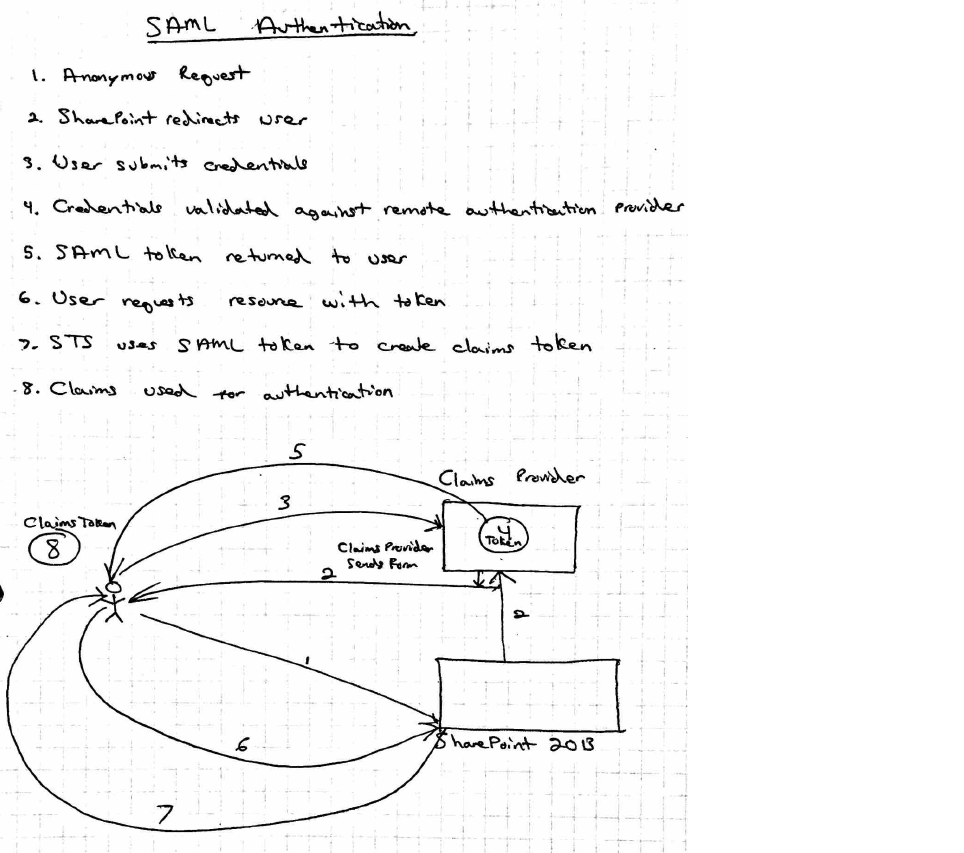 SAML Authentication
1. Anonymous Request
2. SharePoint redirects user
3. User submits credentials
4. Credentials validated against remote authentication provider
5. SAML token returned to user
6. User requests resource with token
7. STS uses SAML token to create claims token
8. Claims used for authentication
5
Claims Provider
3
Claims Token
8
4
Token
Claims Provider
Sends Form
2
2
1
6
SharePoint 2013
7